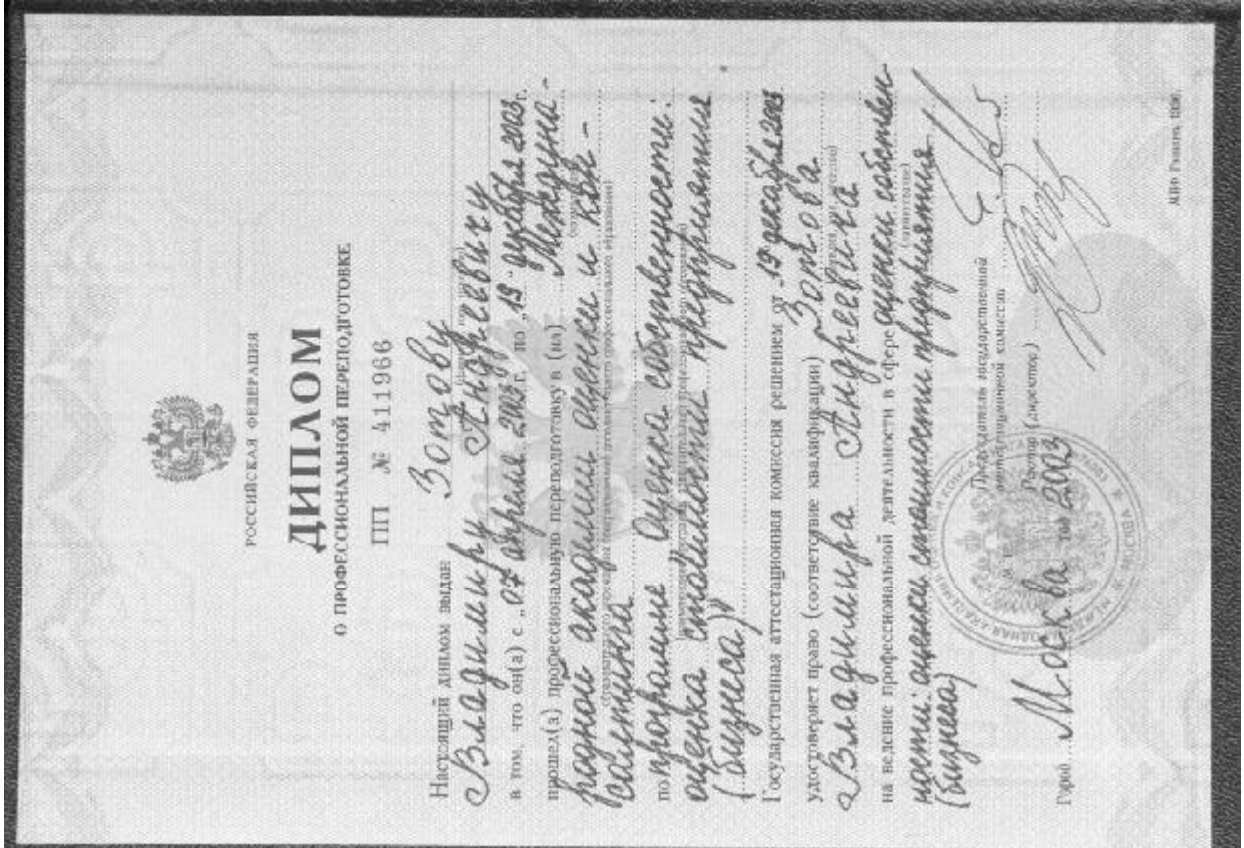 РОССИЙСКАЯ ФЕДЕРАЦИЯ
ДИПЛОМ
О ПРОФЕССИОНАЛЬНОЙ ПЕРЕПОДГОТОВКЕ
ПП № 411966
Настоящий диплом выдан Зотову
Владимиру Андреевичу
в том, что он(а) с „07" апреля 2003 г. по „19" декабря 2003 г.
прошел(а) профессиональную переподготовку в (на) Междуна-
родной академии оценки и кон-
салтинга
по программе Оценка собственности:
оценка стоимости предприятия
(бизнеса)
Государственная аттестационная комиссия решением от „19" декабря 2003
удостоверяет право (соответствие квалификации) Зотова
Владимира Андреевича
на ведение профессиональной деятельности в сфере оценки собствен-
ности: оценки стоимости предприятия
(бизнеса)
Председатель государственной
аттестационной комиссии
Ректор (директор)
Город Москва 2003
МПФ Гознака. 1996.